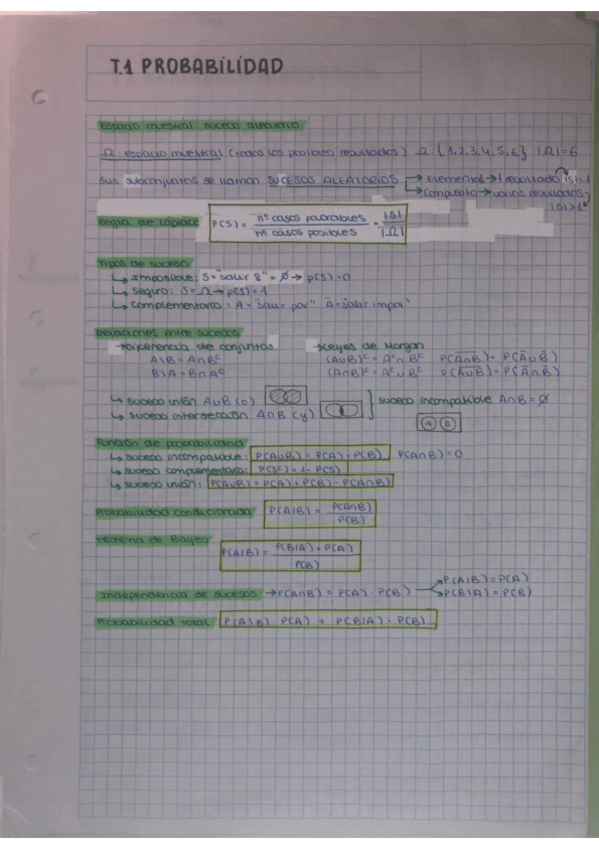 T.1 PROBABILIDAD
Espacio muestral. suceso aleatorio
Ω: espacio muestral (todos los posibles resultados) Ω: {1,2,3,4,5,6} |Ω|=6
Sus subconjuntos se llaman SUCESOS ALEATORIOS → Elemental → 1 resultado |S|=1
→ Compuesto → varios resultados
|S|>1
Regla de Laplace P(S) = nº casos favorables / nº casos posibles = |S| / |Ω|
Tipos de suceso
↳ Imposible: S="salir 8" = Ø → p(S)=0
↳ Seguro: S=Ω → p(S)=1
↳ Complementario: A="salir par" Ā="salir impar"
Relaciones entre sucesos
→ Diferencia de conjuntos → Leyes de Morgan
A\B = A∩Bᶜ (A∪B)ᶜ = Aᶜ∩Bᶜ
B\A = B∩Aᶜ (A∩B)ᶜ = Aᶜ∪Bᶜ
↳ suceso unión A∪B (o) } suceso incompatible A∩B=Ø
↳ suceso intersección A∩B (y)
A B
Función de probabilidad
↳ suceso incompatible: P(A∪B)=P(A)+P(B) P(A∩B)=0
↳ suceso complementario: P(Sᶜ)=1-P(S)
↳ suceso unión: P(A∪B)=P(A)+P(B)-P(A∩B)
Probabilidad condicionada P(A|B) = P(A∩B) / P(B)
Teorema de Bayes P(A|B) = P(B|A)·P(A) / P(B)
Independencia de sucesos → P(A∩B) = P(A)·P(B) → P(A|B)=P(A)
→ P(B|A)=P(B)
Probabilidad total P(A|B) P(A) + P(B|A)·P(B)